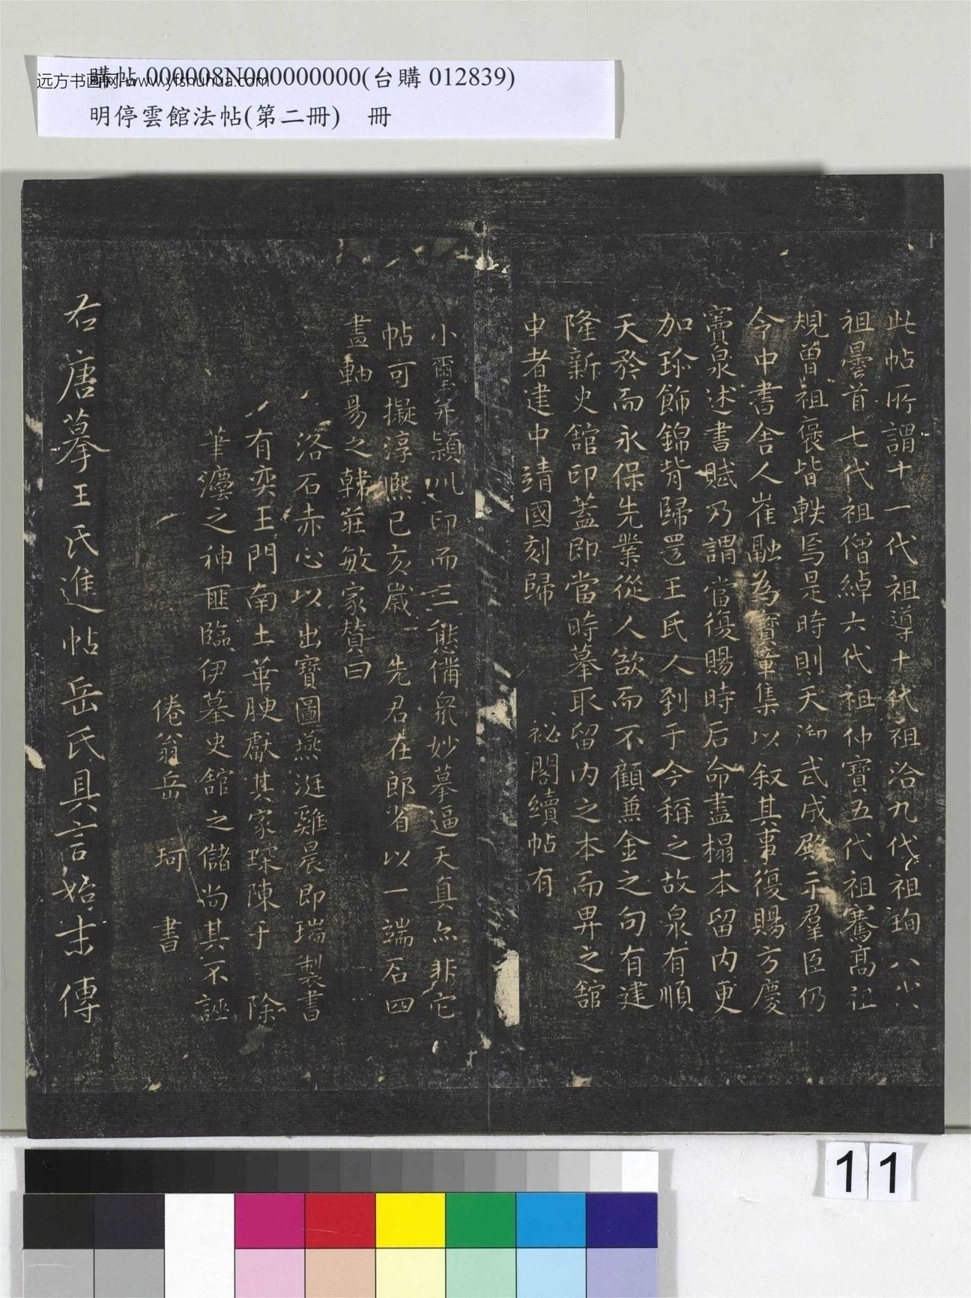 購帖 000008N000000000(台購 012839)
远方书画网 www.yfshuhua.com
明停雲館法帖(第二冊) 冊
此帖所謂十一代祖導十代祖洽九代祖珣八代
祖曇首七代祖僧綽六代祖仲寶五代祖騫高祖
規曾祖褒皆軼焉是時則天御武成殿示羣臣仍
令中書舍人崔融為寶章集以叙其事復賜方慶
竇泉述書賦乃謂當後賜時后命盡榻本留內更
加珎飾錦背歸還王氏人到于今稱之故泉有順
天矜而永保先業從人欲而不顧兼金之句有建
隆新史館印蓋即當時摹取留內之本而畀之館
中者建中靖國刻歸 祕閣續帖有
小璽永潁川印而三態備眾妙摹逼天真亦非它
帖可擬淳熙己亥歲 先君在郎省以一端石四
畫軸易之韓莊敏家贊曰
洛石赤心以出寶圖燕涎雞晨即瑞製書
有奕王門南土華腴獻其家琛陳于 除
筆灋之神匪臨伊摹史館之儲尚其不誣
倦翁岳珂書
右唐摹王氏進帖岳氏具言始末傳
11